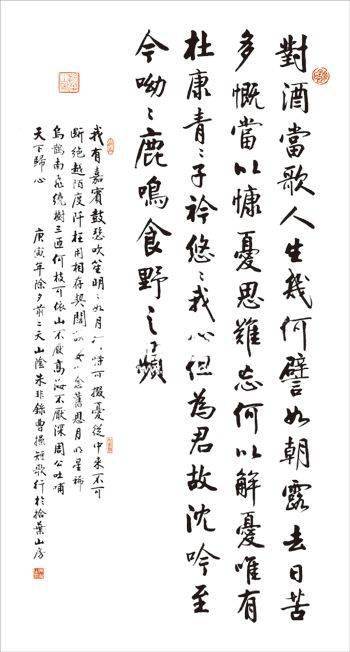 對酒當歌人生幾何譬如朝露去日苦
多慨當以慷憂思難忘何以解憂唯有
杜康青〻子衿悠〻我心但為君故沈吟至
今呦〻鹿鳴食野之蘋
我有嘉賓鼓瑟吹笙明〻如月時可掇憂從中來不可
断絕越陌度阡枉用相存契闊念舊恩月明星稀
烏鵲南飛繞樹三匝何枝可依山不厭高海不厭深周公吐哺
天下歸心 庚寅年除夕前二天山陰朱非錄曹操短歌行於拾葉山房